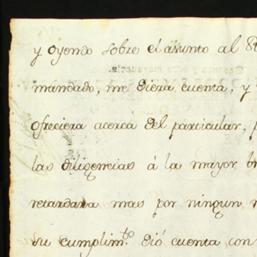 y oyendo sobre el asunto al
mandado, me diera cuenta, y
ofreciera acerca del particular,
las diligencias á la mayor
retardara mas por ningun
su cumplim.to dió cuenta con